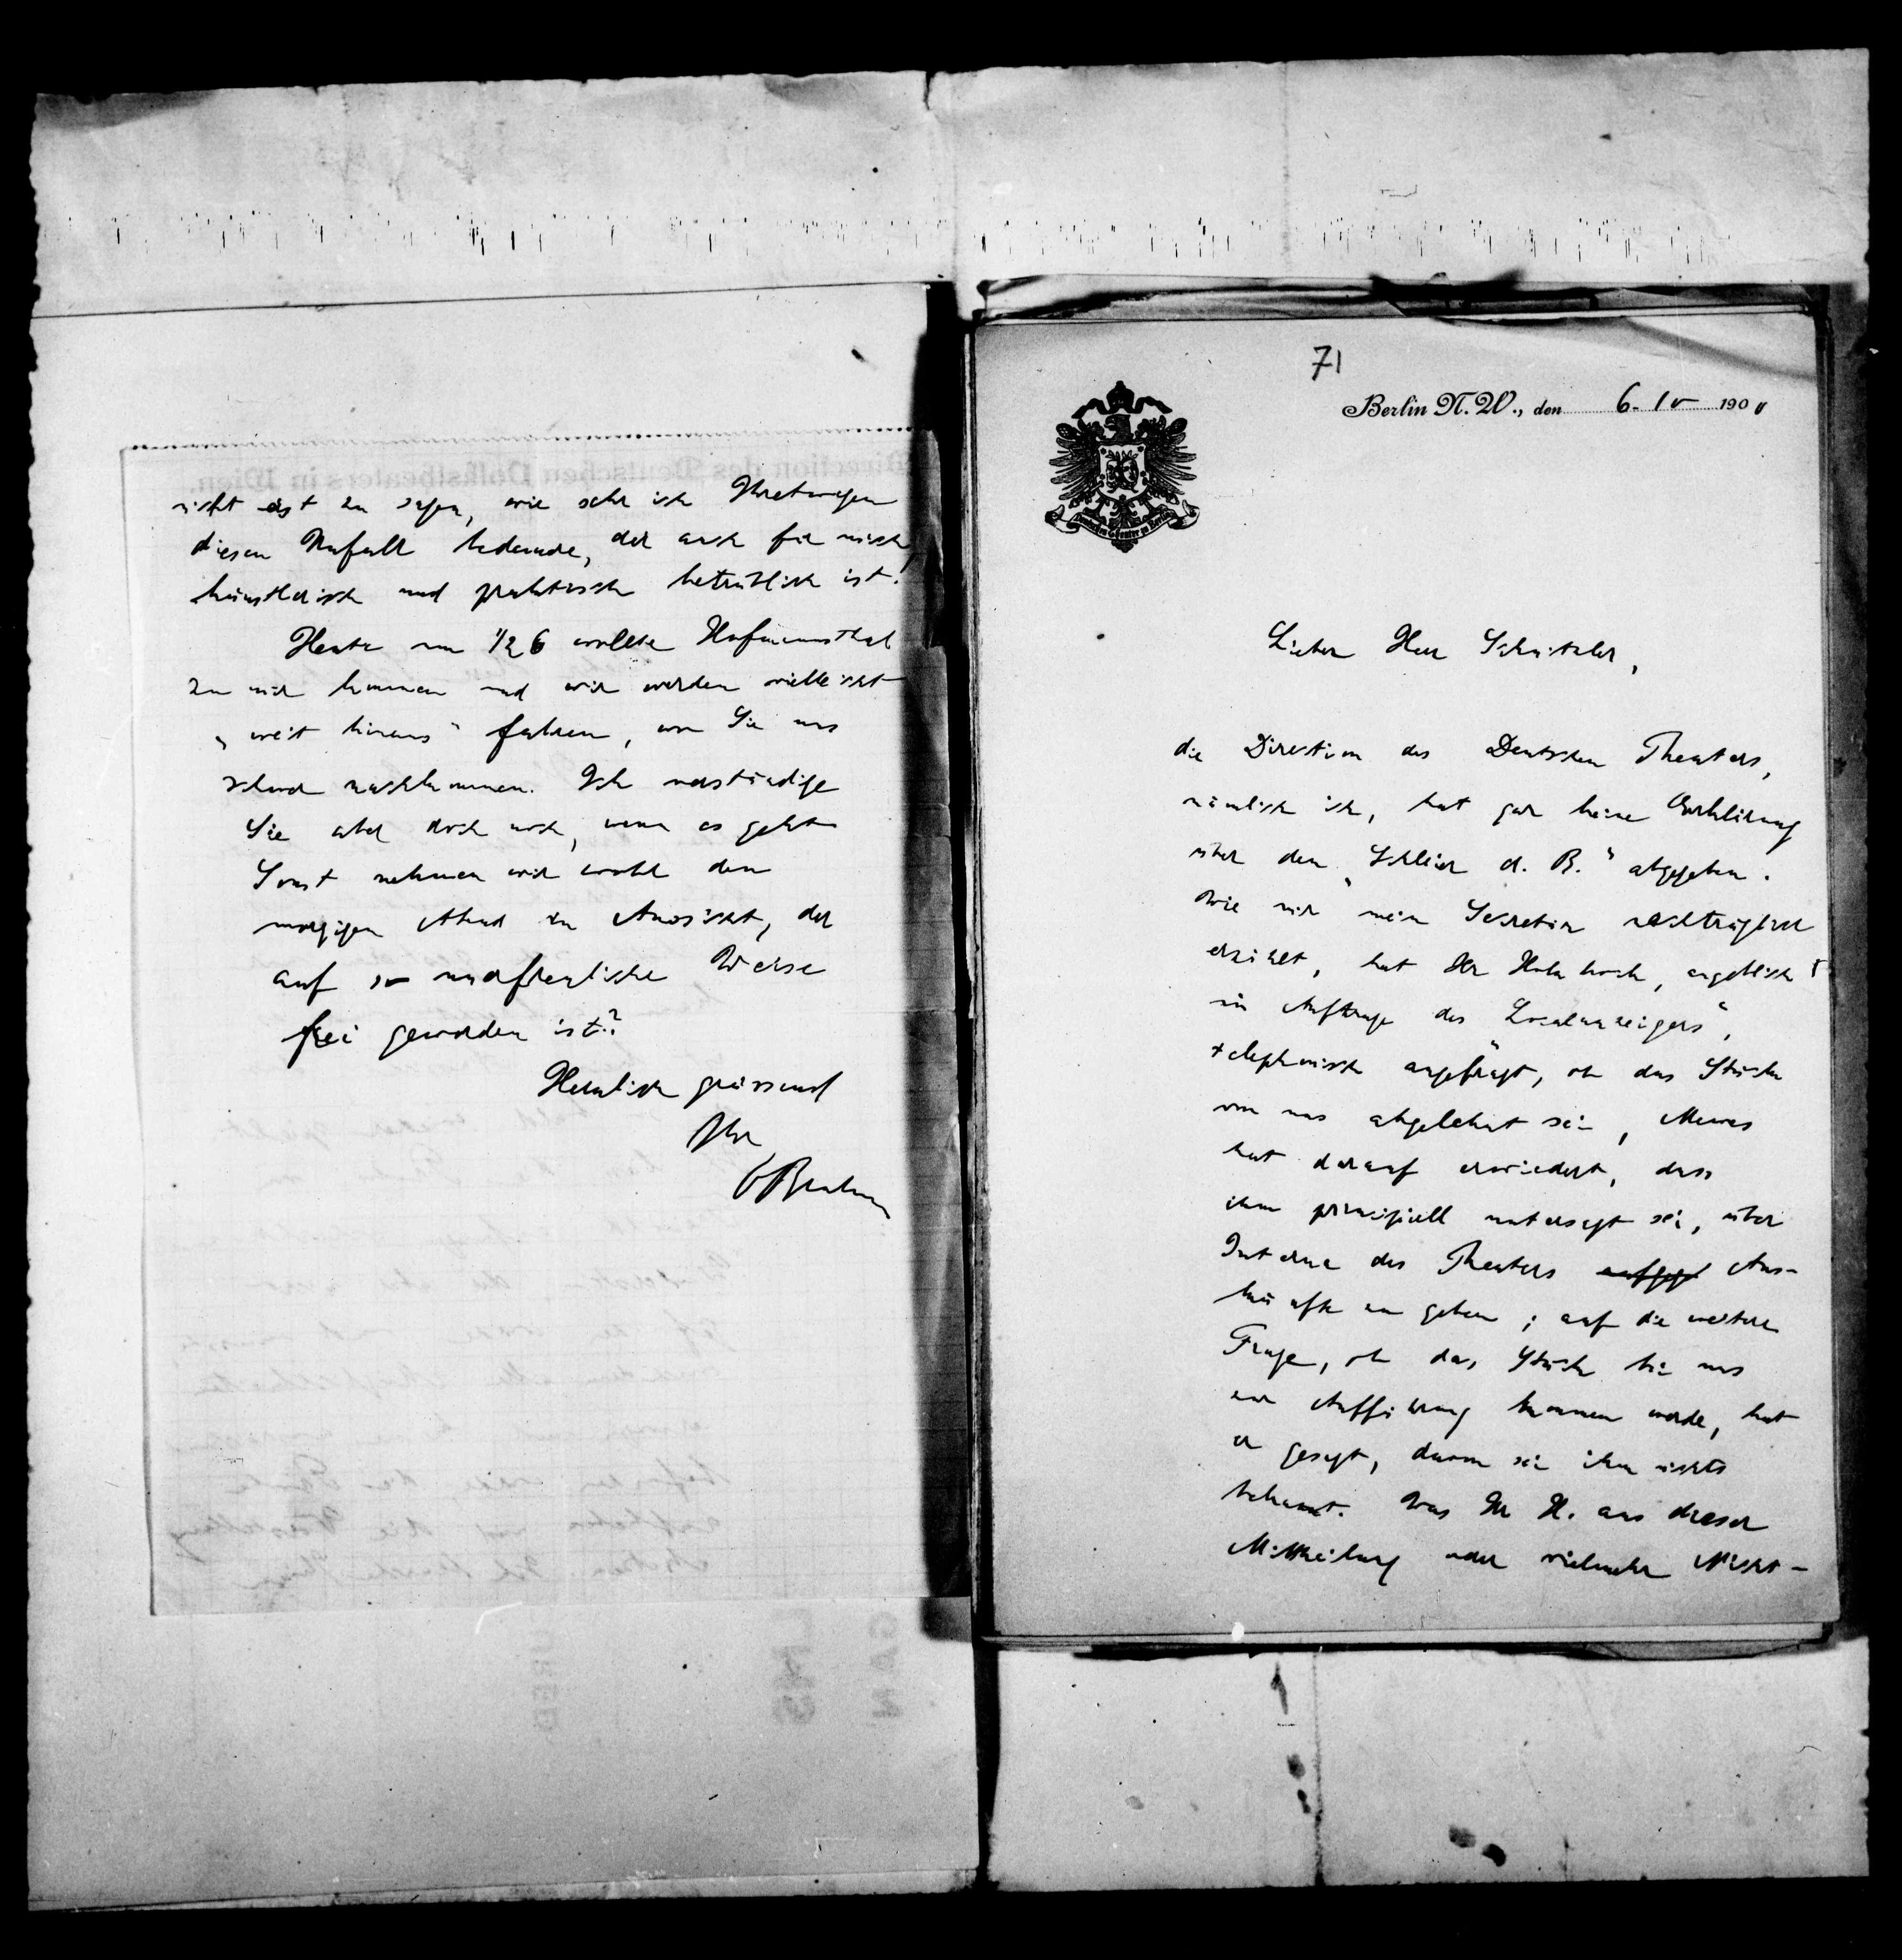 nicht erst zu sagen, wie sehr ich Ihretwegen
diesen Unfall bedaure, der auch für mich
künstlerisch und praktisch betrüblich ist!
Heute um 1/2 6 wollte Hofmannsthal
zu mir kommen und wir werden vielleicht
„weit hinaus“ fahren, wo Sie uns
schwer nachkommen. Ich verständige
Sie aber doch noch, wenn es geht
Sonst nehmen wir wohl den
morgigen Abend in Aussicht, der
auf so unerfreuliche Weise
frei geworden ist?
Herzlich grüssend
Ihr
OBrahm
71
Berlin N. W., den 6. 10 1900
Deutsches Theater zu Berlin
Lieber Herr Schnitzler,
die Direction des Deutschen Theaters,
nämlich ich, hat gar keine Erklärung
über den „Schleier d. B.“ abgegeben.
Wie mir mein Secretär nachträglich
erzählt, hat Hr Holzbock, angeblich
im Auftrage des „Localanzeigers“,
telephonisch angefragt, ob das Stück
von uns abgelehnt sei, Mewes
hat darauf erwiedert, dass
ihm principiell untersagt sei, über
Interna des Theaters Aus-
künfte zu geben; auf die weitere
Frage, ob das Stück bei uns
zur Aufführung kommen werde, hat
er gesagt, davon sei ihm nichts
bekannt. Was Hr H. aus dieser
Mittheilung oder vielmehr Nicht-